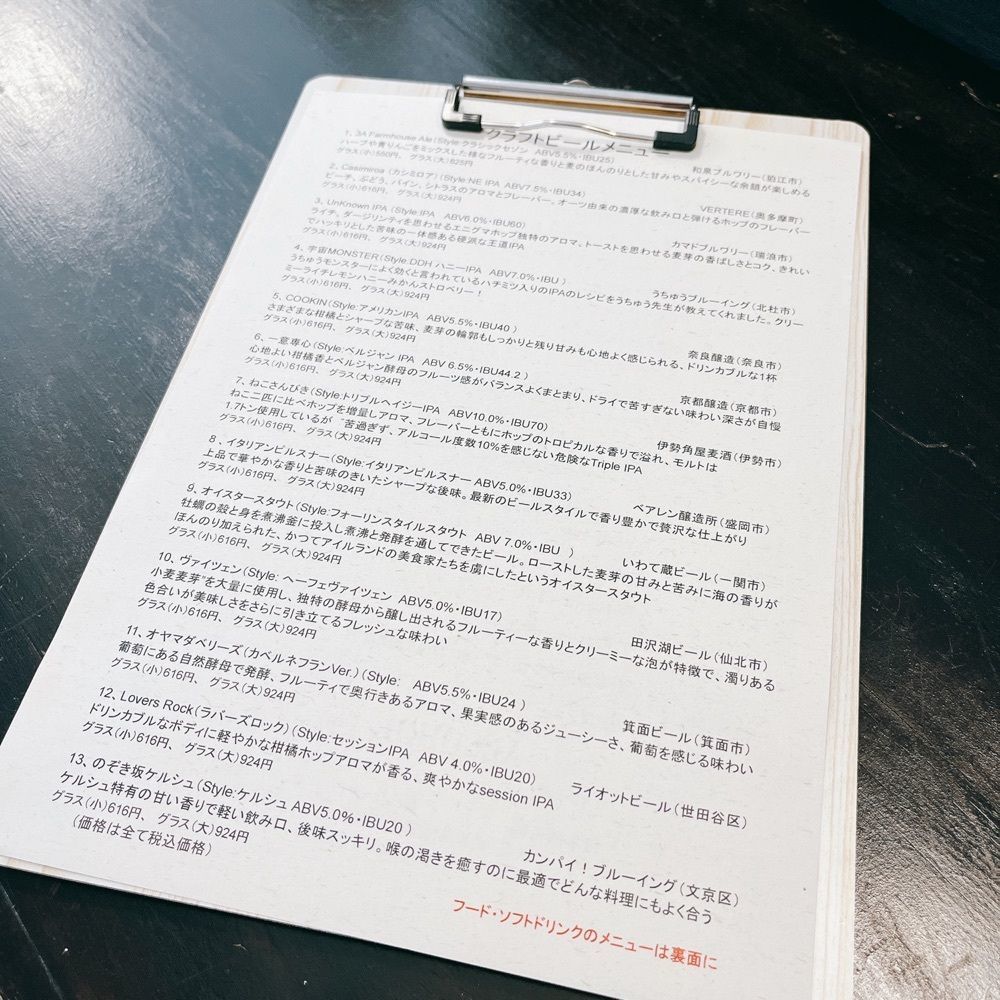 クラフトビールメニュー
1、3A Farmhouse Ale(Style:クラシックセゾン ABV5.5%・IBU25) 和泉ブルワリー(狛江市)
ハーブや青りんごをミックスした様なフルーティな香りと麦のほんのりとした甘みやスパイシーな余韻が楽しめる
グラス(小)550円、 グラス(大)825円
2、Casimiroa (カシミロア) (Style:NE IPA ABV7.5%・IBU34) VERTERE(奥多摩町)
ピーチ、ぶどう、パイン、シトラスのアロマとフレーバー。オーツ由来の濃厚な飲み口と弾けるホップのフレーバー
グラス(小)616円、 グラス(大)924円
3、UnKnown IPA (Style:IPA ABV6.0%・IBU60) カマドブルワリー(瑞浪市)
ライチ、ダージリンティを思わせるエニグマホップ独特のアロマ、トーストを思わせる麦芽の香ばしさとコク、きれい
でハッキリとした苦味の一体感ある硬派な王道IPA
グラス(小)616円、 グラス(大)924円
4、宇宙MONSTER(Style:DDH ハニーIPA ABV7.0%・IBU ) うちゅうブルーイング(北杜市)
うちゅうモンスターによく効くと言われているハチミツ入りのIPAのレシピをうちゅう先生が教えてくれました。クリー
ミーライチレモンハニーみかんストロベリー！
グラス(小)616円、 グラス(大)924円
5、COOKIN(Style:アメリカンIPA ABV5.5%・IBU40 ) 奈良醸造(奈良市)
さまざまな柑橘とシャープな苦味、麦芽の輪郭もしっかりと残り甘みも心地よく感じられる、ドリンカブルな1杯
グラス(小)616円、 グラス(大)924円
6、一意専心(Style:ベルジャン IPA ABV 6.5%・IBU44.2 ) 京都醸造(京都市)
心地よい柑橘香とベルジャン酵母のフルーツ感がバランスよくまとまり、ドライで苦すぎない味わい深さが自慢
グラス(小)616円、 グラス(大)924円
7、ねこさんびき(Style:トリプルヘイジーIPA ABV10.0%・IBU70) 伊勢角屋麦酒(伊勢市)
ねこ二匹に比べホップを増量しアロマ、フレーバーともにホップのトロピカルな香りで溢れ、モルトは
1.7トン使用しているが〝苦過ぎず、アルコール度数10%を感じない危険なTriple IPA
グラス(小)616円、 グラス(大)924円
8 、イタリアンピルスナー(Style:イタリアンピルスナー ABV5.0%・IBU33) ベアレン醸造所(盛岡市)
上品で華やかな香りと苦味のきいたシャープな後味。最新のビールスタイルで香り豊かで贅沢な仕上がり
グラス(小)616円、 グラス(大)924円
9、オイスタースタウト(Style:フォーリンスタイルスタウト ABV 7.0%・IBU ) いわて蔵ビール(一関市)
牡蠣の殻と身を煮沸釜に投入し煮沸と発酵を通してできたビール。ローストした麦芽の甘みと苦みに海の香りが
ほんのり加えられた、かつてアイルランドの美食家たちを虜にしたというオイスタースタウト
グラス(小)616円、 グラス(大)924円
10、ヴァイツェン(Style: ヘーフェヴァイツェン ABV5.0%・IBU17) 田沢湖ビール(仙北市)
小麦麦芽〝を大量に使用し、独特の酵母から醸し出されるフルーティーな香りとクリーミーな泡が特徴で、濁りある
色合いが美味しさをさらに引き立てるフレッシュな味わい
グラス(小)616円、 グラス(大)924円
11、オヤマダベリーズ(カベルネフランVer.)(Style: ABV5.5%・IBU24 ) 箕面ビール(箕面市)
葡萄にある自然酵母で発酵、フルーティで奥行きあるアロマ、果実感のあるジューシーさ、葡萄を感じる味わい
グラス(小)616円、 グラス(大)924円
12、Lovers Rock(ラバーズロック) (Style:セッションIPA ABV 4.0%・IBU20) ライオットビール(世田谷区)
ドリンカブルなボディに軽やかな柑橘ホップアロマが香る、爽やかなsession IPA
グラス(小)616円、 グラス(大)924円
13、のぞき坂ケルシュ(Style:ケルシュ ABV5.0%・IBU20 ) カンパイ！ブルーイング(文京区)
ケルシュ特有の甘い香りで軽い飲み口、後味スッキリ。喉の渇きを癒すのに最適でどんな料理にもよく合う
グラス(小)616円、 グラス(大)924円
(価格は全て税込価格)
フード・ソフトドリンクのメニューは裏面に